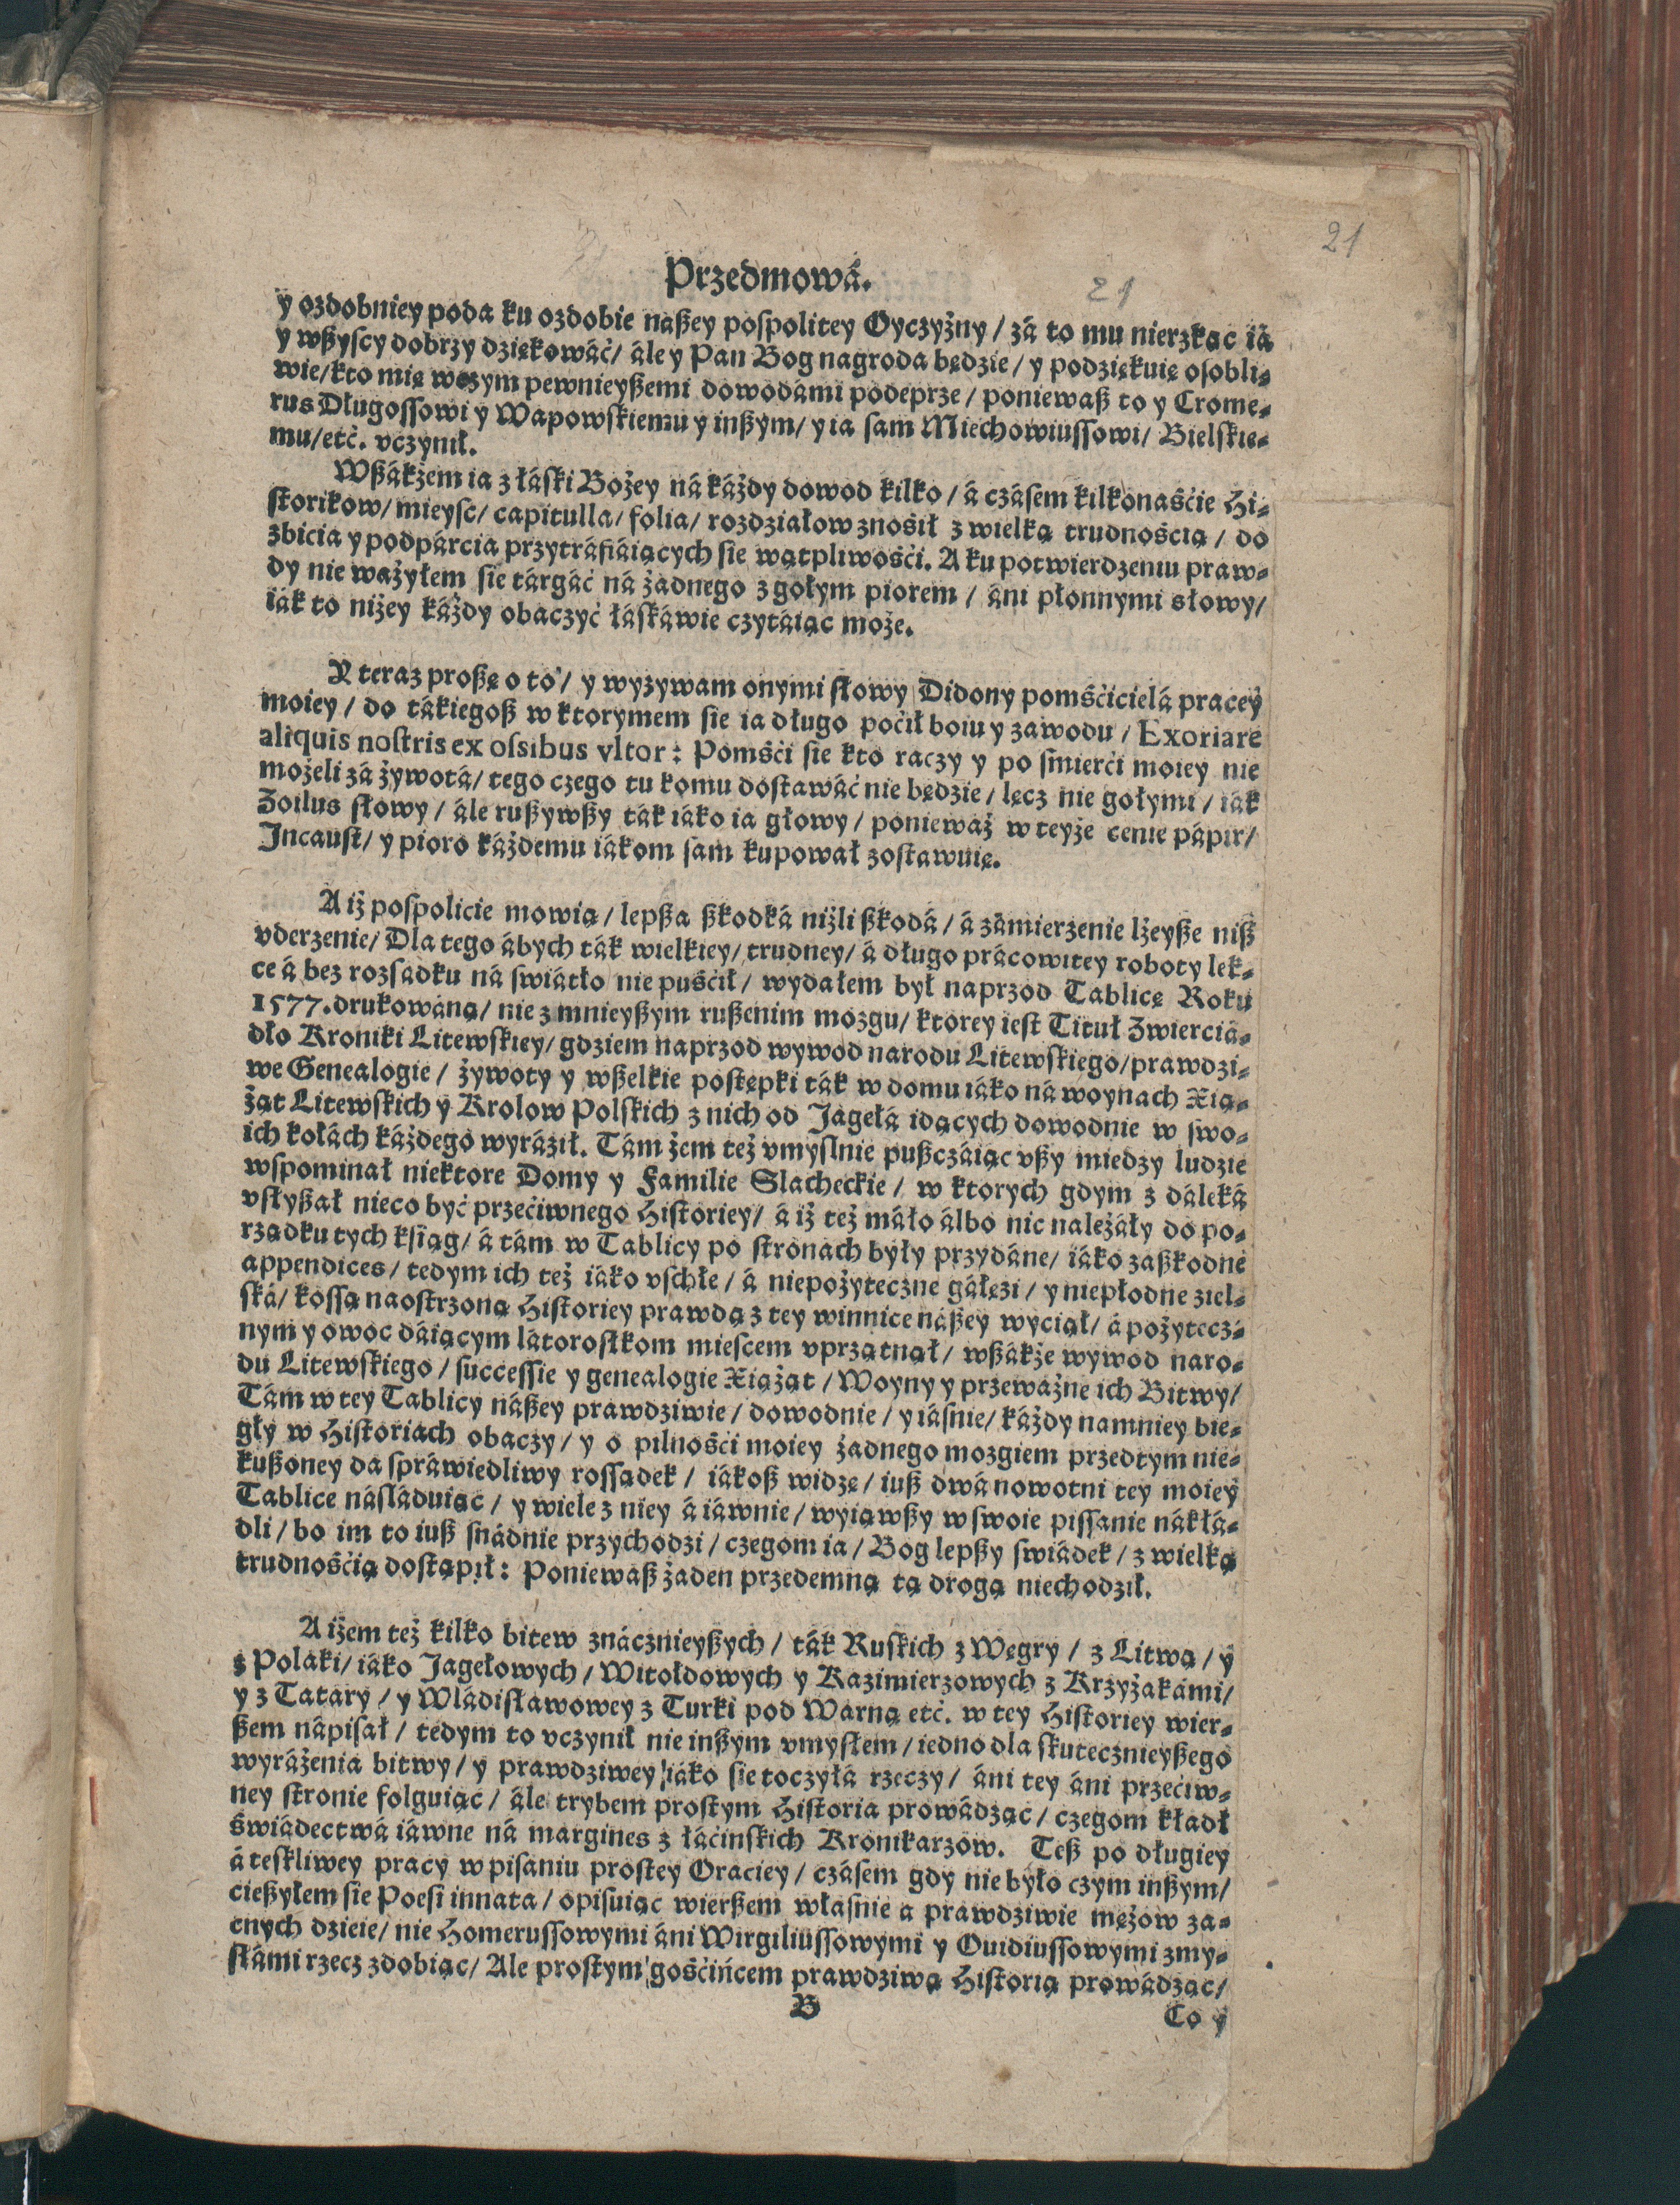 21
Przedmowá.
21
y ozdobniey poda ku ozdobie náßey pospolitey Oyczyzny / zá to mu nierzkąc iá
y wßyscy dobrzy dziękowáć / ále y Pan Bog nagroda będzie / y podziękuię osobli⸗
wie / kto mię w czym pewnieyßemi dowodámi podeprze / poniewaß to y Crome⸗
rus Długossowi y Wapowskiemu y inßym / y ia sam Miechowiussowi / Bielskie⸗
mu / etć. vczynił.
Wßákżem ia z łáski Bożey ná káżdy dowod kilko / á czásem kilkonaśćie Hi⸗
storikow / mieysc / capitulla / folia / rozdziałow znosił z wielką trudnośćią / do
zbicia y podpárcia przytráfiáiących sie wątpliwośći. A ku potwierdzeniu praw⸗
dy nie ważyłem sie tárgáć ná żadnego z gołym piorem / áni płonnymi słowy /
iák to niżey káżdy obaczyć łáskáwie czytáiąc może.
Y teraz proßę o to / y wyzywam onymi słowy Didony pomśćicielá pracey
moiey / do tákiegoß w ktorymem sie ia długo poćił boiu y zawodu / Exoriare
aliquis nostris ex ossibus vltor : Pomśći sie kto raczy y po śmierći moiey nie
możeli zá żywotá / tego czego tu komu dostawáć nie będzie / lecz nie gołymi / iák
Zoilus słowy / ále rußywßy ták iáko ia głowy / poniewáż w teyże cenie pápir /
Incaust / y pioro káżdemu iákom sam kupował zostawuię.
A iż pospolicie mowią / lepßa ßkodká niżli ßkodá / á zámierzenie lżeyße niß
vderzenie / Dla tego ábych ták wielkiey / trudney / á długo prácowitey roboty lek⸗
ce á bez rozsądku ná świátło nie puśćił / wydałem był naprzod Tablicę Roku
1577. drukowáną / nie z mnieyßym rußenim mozgu / ktorey iest Tituł Zwierciá⸗
dło Kroniki Litewskiey / gdziem naprzod wywod narodu Litewskiego / prawdzi⸗
we Genealogie / żywoty y wßelkie postępki ták w domu iáko ná woynach Xią⸗
żąt Litewskich y Krolow Polskich z nich od Jagełá idących dowodnie w swo⸗
ich kołách káżdego wyráźił. Tám żem też vmyslnie pußczáiąc vßy miedzy ludzie
wspominał niektore Domy y Familie Slacheckie / w ktorych gdym z dáleká
vsłyßał nieco być przećiwnego Historiey / á iż też máło álbo nic należáły do po⸗
rządku tych ksiąg / á tám w Tablicy po stronách były przydáne / iáko zaßkodne
appendices / tedym ich też iáko vschłe / á niepożyteczne gáłęzi / y niepłodne ziel⸗
ská / kossą naostrzoną Historiey prawdą z tey winnice náßey wyciął / á pożytecz⸗
nym y owoc dáiącym látorostkom miescem vprzątnął / wßákże wywod naro⸗
du Litewskiego / successie y genealogie Xiążąt / Woyny y przeważne ich Bitwy /
Tám w tey Tablicy náßey prawdziwie / dowodnie / y iásnie / káżdy namniey bie⸗
gły w Historiach obaczy / y o pilnośći moiey żadnego mozgiem przedtym nie⸗
kußoney da spráwiedliwy rossądek / iákoß widzę / iuß dwá nowotni tey moiey
Tablice násláduiąc / y wiele z niey á iáwnie / wyiąwßy w swoie pissanie nákłá⸗
dli / bo im to iuß snádnie przychodzi / czegom ia / Bog lepßy świádek / z wielką
trudnośćią dostąpił : Poniewaß żaden przedemną tą drogą niechodził.
A iżem też kilko bitew znácznieyßych / ták Ruskich z Węgry / z Litwą / y
z Polaki / iáko Jagełowych / Witołdowych y Kazimierzowych z Krzyżakámi /
y z Tatáry / y Wládisławowey z Turki pod Warną etć. w tey Historiey wier⸗
ßem nápisał / tedym to vczynił nie inßym vmysłem / iedno dla skutecznieyßego
wyráżenia bitwy / y prawdziwey iáko sie toczyłá rzeczy / áni tey áni przećiw⸗
ney stronie folguiąc / ále trybem prostym Historia prowádząc / czegom kładł
świádectwá iáwne ná margines z łáćinskich Kronikarzow. Teß po długiey
á teskliwey pracy w pisaniu prostey Oraciey / czásem gdy nie było czym inßym /
cießyłem sie Poesi innata / opisuiąc wierßem własnie a prawdziwie mężow za⸗
cnych dzieie / nie Homerussowymi áni Wirgiliussowymi y Ouidiussowymi zmy⸗
słámi rzecz zdobiąc / Ale prostym gośćińcem prawdziwą Historią prowádząc /
B
Co y